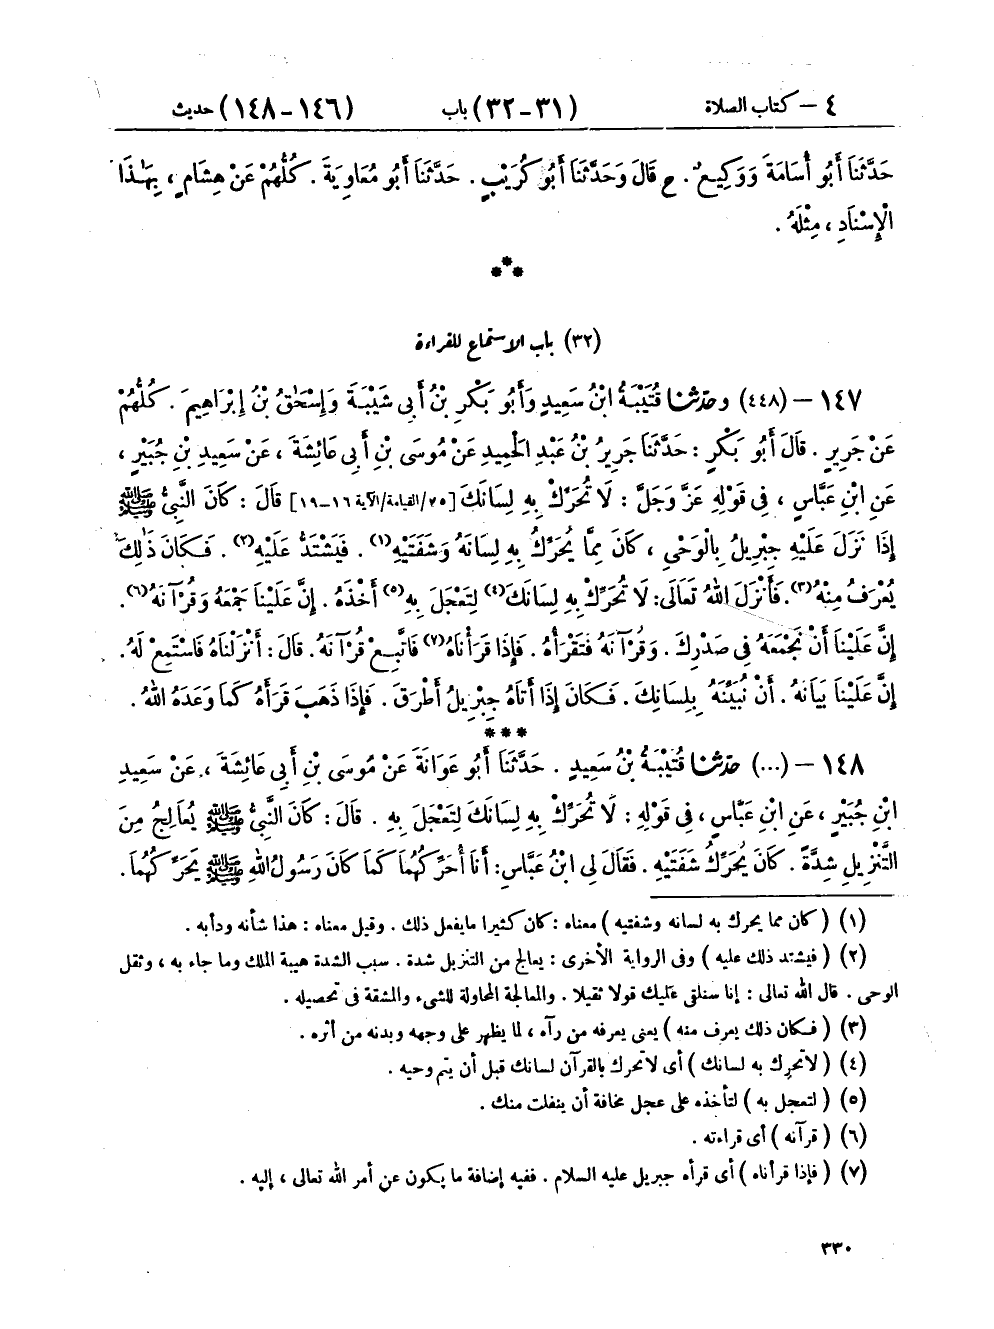 ٤ – كتاب الصلاة (٣١-٣٢) باب (١٤٦-١٤٨) حديث
حَدَّثَنَا أَبُو أُسَامَةَ وَوَكِيعٌ. ح قَالَ وَحَدَّثَنَا أَبُو كُرَيْبٍ. حَدَّثَنَا أَبُو مُعَاوِيَةَ. كُلُّهُمْ عَنْ هِشَامٍ، بِهٰذَا
الْإِسْنَادِ، مِثْلَهُ.
***
(٣٢) باب الاستماع للقراءة
١٤٧ – (٤٤٨) وحدّثنا قُتَيْبَةُ ابْنُ سَعِيدٍ وَأَبُو بَكْرِ بْنُ أَبِي شَيْبَةَ وَإِسْحٰقُ بْنُ إِبْرَاهِيمَ. كُلُّهُمْ
عَنْ جَرِيرٍ. قَالَ أَبُو بَكْرٍ: حَدَّثَنَا جَرِيرُ بْنُ عَبْدِ الْحَمِيدِ عَنْ مُوسَى بْنِ أَبِي عَائِشَةَ، عَنْ سَعِيدِ بْنِ جُبَيْرٍ،
عَنِ ابْنِ عَبَّاسٍ، فِي قَوْلِهِ عَزَّ وَجَلَّ: لَا تُحَرِّكْ بِهِ لِسَانَكَ [٧٥/القيامة/الآية ١٦-١٩] قَالَ: كَانَ النَّبِيُّ ﷺ
إِذَا نَزَلَ عَلَيْهِ جِبْرِيلُ بِالْوَحْيِ، كَانَ مِمَّا يُحَرِّكُ بِهِ لِسَانَهُ وَشَفَتَيْهِ(١). فَيَشْتَدُّ عَلَيْهِ(٢). فَكَانَ ذٰلِكَ
يُعْرَفُ مِنْهُ(٣). فَأَنْزَلَ اللهُ تَعَالَى: لَا تُحَرِّكْ بِهِ لِسَانَكَ(٤) لِتَعْجَلَ بِهِ(٥) أَخْذَهُ. إِنَّ عَلَيْنَا جَمْعَهُ وَقُرْآنَهُ(٦).
إِنَّ عَلَيْنَا أَنْ نَجْمَعَهُ فِي صَدْرِكَ. وَقُرْآنَهُ فَتَقْرَأُهُ. فَإِذَا قَرَأْنَاهُ(٧) فَاتَّبِعْ قُرْآنَهُ. قَالَ: أَنْزَلْنَاهُ فَاسْتَمِعْ لَهُ.
إِنَّ عَلَيْنَا بَيَانَهُ. أَنْ نُبَيِّنَهُ بِلِسَانِكَ. فَكَانَ إِذَا أَتَاهُ جِبْرِيلُ أَطْرَقَ. فَإِذَا ذَهَبَ قَرَأَهُ كَمَا وَعَدَهُ اللهُ.
***
١٤٨ – (...) حدّثنا قُتَيْبَةُ بْنُ سَعِيدٍ. حَدَّثَنَا أَبُو عَوَانَةَ عَنْ مُوسَى بْنِ أَبِي عَائِشَةَ، عَنْ سَعِيدِ
ابْنِ جُبَيْرٍ، عَنِ ابْنِ عَبَّاسٍ، فِي قَوْلِهِ: لَا تُحَرِّكْ بِهِ لِسَانَكَ لِتَعْجَلَ بِهِ. قَالَ: كَانَ النَّبِيُّ ﷺ يُعَالِجُ مِنَ
التَّنْزِيلِ شِدَّةً. كَانَ يُحَرِّكُ شَفَتَيْهِ. فَقَالَ لِي ابْنُ عَبَّاسٍ: أَنَا أُحَرِّكُهُمَا كَمَا كَانَ رَسُولُ اللهِ ﷺ يُحَرِّكُهُمَا.
(١) ( كان مما يحرك به لسانه وشفتيه ) معناه : كان كثيرا مايفعل ذلك . وقيل معناه : هذا شأنه ودأبه .
(٢) ( فيشتد ذلك عليه ) وفى الرواية الأخرى : يعالج من التنزيل شدة . سبب الشدة هيبة الملك وما جاء به ، وثقل
الوحى . قال الله تعالى : إنا سنلقى عليك قولا ثقيلا . والمعالجة المحاولة للشىء والمشقة فى تحصيله .
(٣) ( فكان ذلك يعرف منه ) يعنى يعرفه من رآه ، لما يظهر على وجهه وبدنه من أثره .
(٤) ( لاتحرك به لسانك ) أى لاتحرك بالقرآن لسانك قبل أن يتم وحيه .
(٥) ( لتعجل به ) لتأخذه على عجل مخافة أن ينفلت منك .
(٦) ( قرآنه ) أى قراءته .
(٧) ( فإذا قرأناه ) أى قرأه جبريل عليه السلام . ففيه إضافة ما يكون عن أمر الله تعالى ، إليه .
٣٣٠